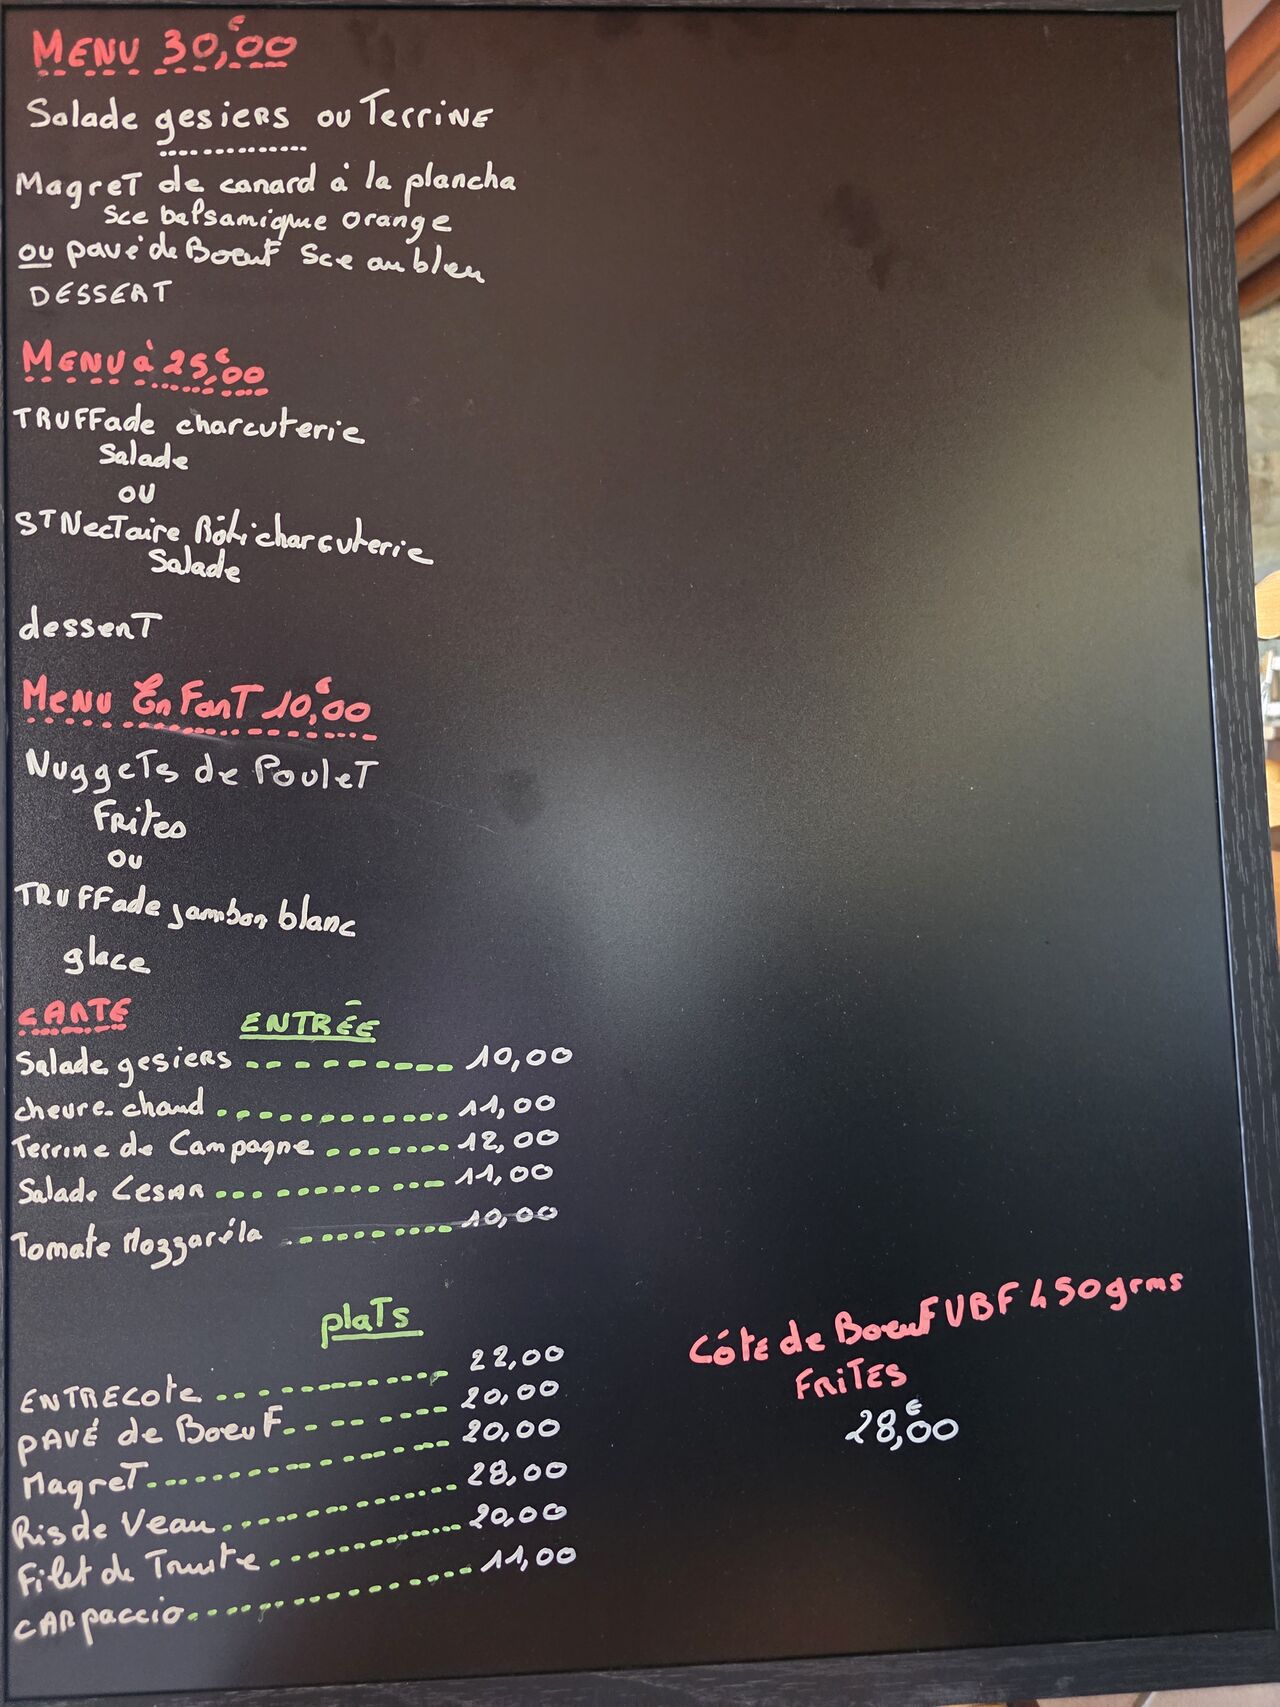 MENU 30,€00
Salade gesiers ou Terrine
Magret de canard à la plancha
Sce balsamique orange
ou pavé de Boeuf Sce au bleu
DESSERT
MENU à 25,€00
TRUFFade charcuterie
Salade
OU
ST Nectaire Rôti charcuterie
Salade
dessert
MENU EnFanT 10,€00
Nuggets de Poulet
Frites
OU
TRUFFade jambon blanc
glace
CARTE
ENTRÉE
Salade gesiers 10,00
chevre-chaud 11,00
Terrine de Campagne 12,00
Salade CESAR 11,00
Tomate Mozzaréla 10,00
plaTs
ENTRECote 22,00
PAVÉ de BoeuF 20,00
Magret 20,00
Ris de Veau 28,00
Filet de Truite 20,00
CARpaccio 11,00
Côte de Boeuf VBF 450grms
FRITES
28,€00